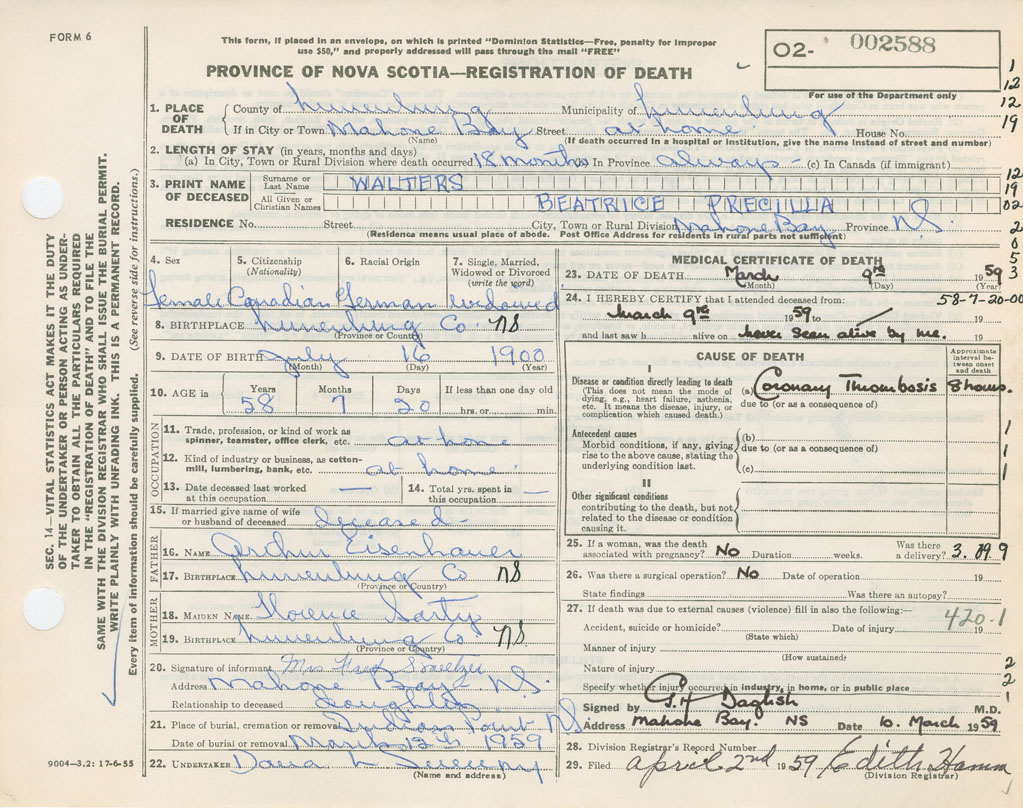 FORM 6
This form, if placed in an envelope, on which is printed "Dominion Statistics—Free, penalty for improper
use $50," and properly addressed will pass through the mail "FREE"
PROVINCE OF NOVA SCOTIA—REGISTRATION OF DEATH
O2- 002588
For use of the Department only
1
12
12
19
12
19
02
2
0
5
3
1. PLACE OF DEATH
County of Lunenburg Municipality of Lunenburg
If in City or Town Mahone Bay Street at home House No.
(Name) (If death occurred in a hospital or institution, give the name instead of street and number)
2. LENGTH OF STAY (in years, months and days)
(a) In City, Town or Rural Division where death occurred 18 months In Province always - (c) In Canada (if immigrant)
3. PRINT NAME OF DECEASED
Surname or Last Name WALTERS
All Given or Christian Names BEATRICE PRECILLA
RESIDENCE No. Street City, Town or Rural Division Mahone Bay Province NS.
(Residence means usual place of abode. Post Office Address for residents in rural parts not sufficient)
4. Sex 5. Citizenship (Nationality) 6. Racial Origin 7. Single, Married, Widowed or Divorced (write the word)
female Canadian German widowed
8. BIRTHPLACE Lunenburg Co. NS
(Province or Country)
9. DATE OF BIRTH July 16 1900
(Month) (Day) (Year)
10. AGE in Years Months Days If less than one day old
58 7 20 hrs. or min.
OCCUPATION
11. Trade, profession, or kind of work as spinner, teamster, office clerk, etc. at home
12. Kind of industry or business, as cotton-mill, lumbering, bank, etc. at home
13. Date deceased last worked at this occupation —
14. Total yrs. spent in this occupation —
15. If married give name of wife or husband of deceased deceased -
FATHER
16. NAME Arthur Eisenhauer
17. BIRTHPLACE Lunenburg Co NS
(Province or Country)
MOTHER
18. MAIDEN NAME Florence Sarty
19. BIRTHPLACE Lunenburg Co NS
(Province or Country)
20. Signature of informant Mrs Fred Smeltzer
Address Mahone Bay - NS.
Relationship to deceased Daughter
21. Place of burial, cremation or removal Indian Point NS
Date of burial or removal March 12th 1959
22. UNDERTAKER
(Name and address)
MEDICAL CERTIFICATE OF DEATH
23. DATE OF DEATH March 9th 1959
(Month) (Day) (Year)
24. I HEREBY CERTIFY that I attended deceased from: 58-7-20-00
March 9th 1959 to
and last saw h alive on never seen alive by me.
CAUSE OF DEATH
Approximate interval between onset and death
I
Disease or condition directly leading to death
(This does not mean the mode of dying, e.g., heart failure, asthenia, etc. It means the disease, injury, or complication which caused death.)
(a) Coronary Thrombosis 8 hours.
due to (or as a consequence of)
Antecedent causes
Morbid conditions, if any, giving rise to the above cause, stating the underlying condition last.
(b)
due to (or as a consequence of)
(c)
1
1
1
II
Other significant conditions
contributing to the death, but not related to the disease or condition causing it.
25. If a woman, was the death associated with pregnancy? No Duration weeks. Was there a delivery?
26. Was there a surgical operation? No Date of operation 19
State findings Was there an autopsy?
27. If death was due to external causes (violence) fill in also the following:—
420.1
Accident, suicide or homicide? Date of injury 19
(State which)
Manner of injury
(How sustained)
Nature of injury
Specify whether injury occurred in industry, in home, or in public place
2
2
1
Signed by G.H Daglish M.D.
Address Mahone Bay. NS Date 10. March 1959
28. Division Registrar's Record Number
29. Filed April 2nd 1959 Edith Hamm
(Division Registrar)
9004—3.2: 17-6-55
SEC. 14—VITAL STATISTICS ACT MAKES IT THE DUTY
OF THE UNDERTAKER OR PERSON ACTING AS UNDER-
TAKER TO OBTAIN ALL THE PARTICULARS REQUIRED
IN THE "REGISTRATION OF DEATH" AND TO FILE THE
SAME WITH THE DIVISION REGISTRAR WHO SHALL ISSUE THE BURIAL PERMIT.
WRITE PLAINLY WITH UNFADING INK. THIS IS A PERMANENT RECORD.
Every item of information should be carefully supplied. (See reverse side for instructions.)